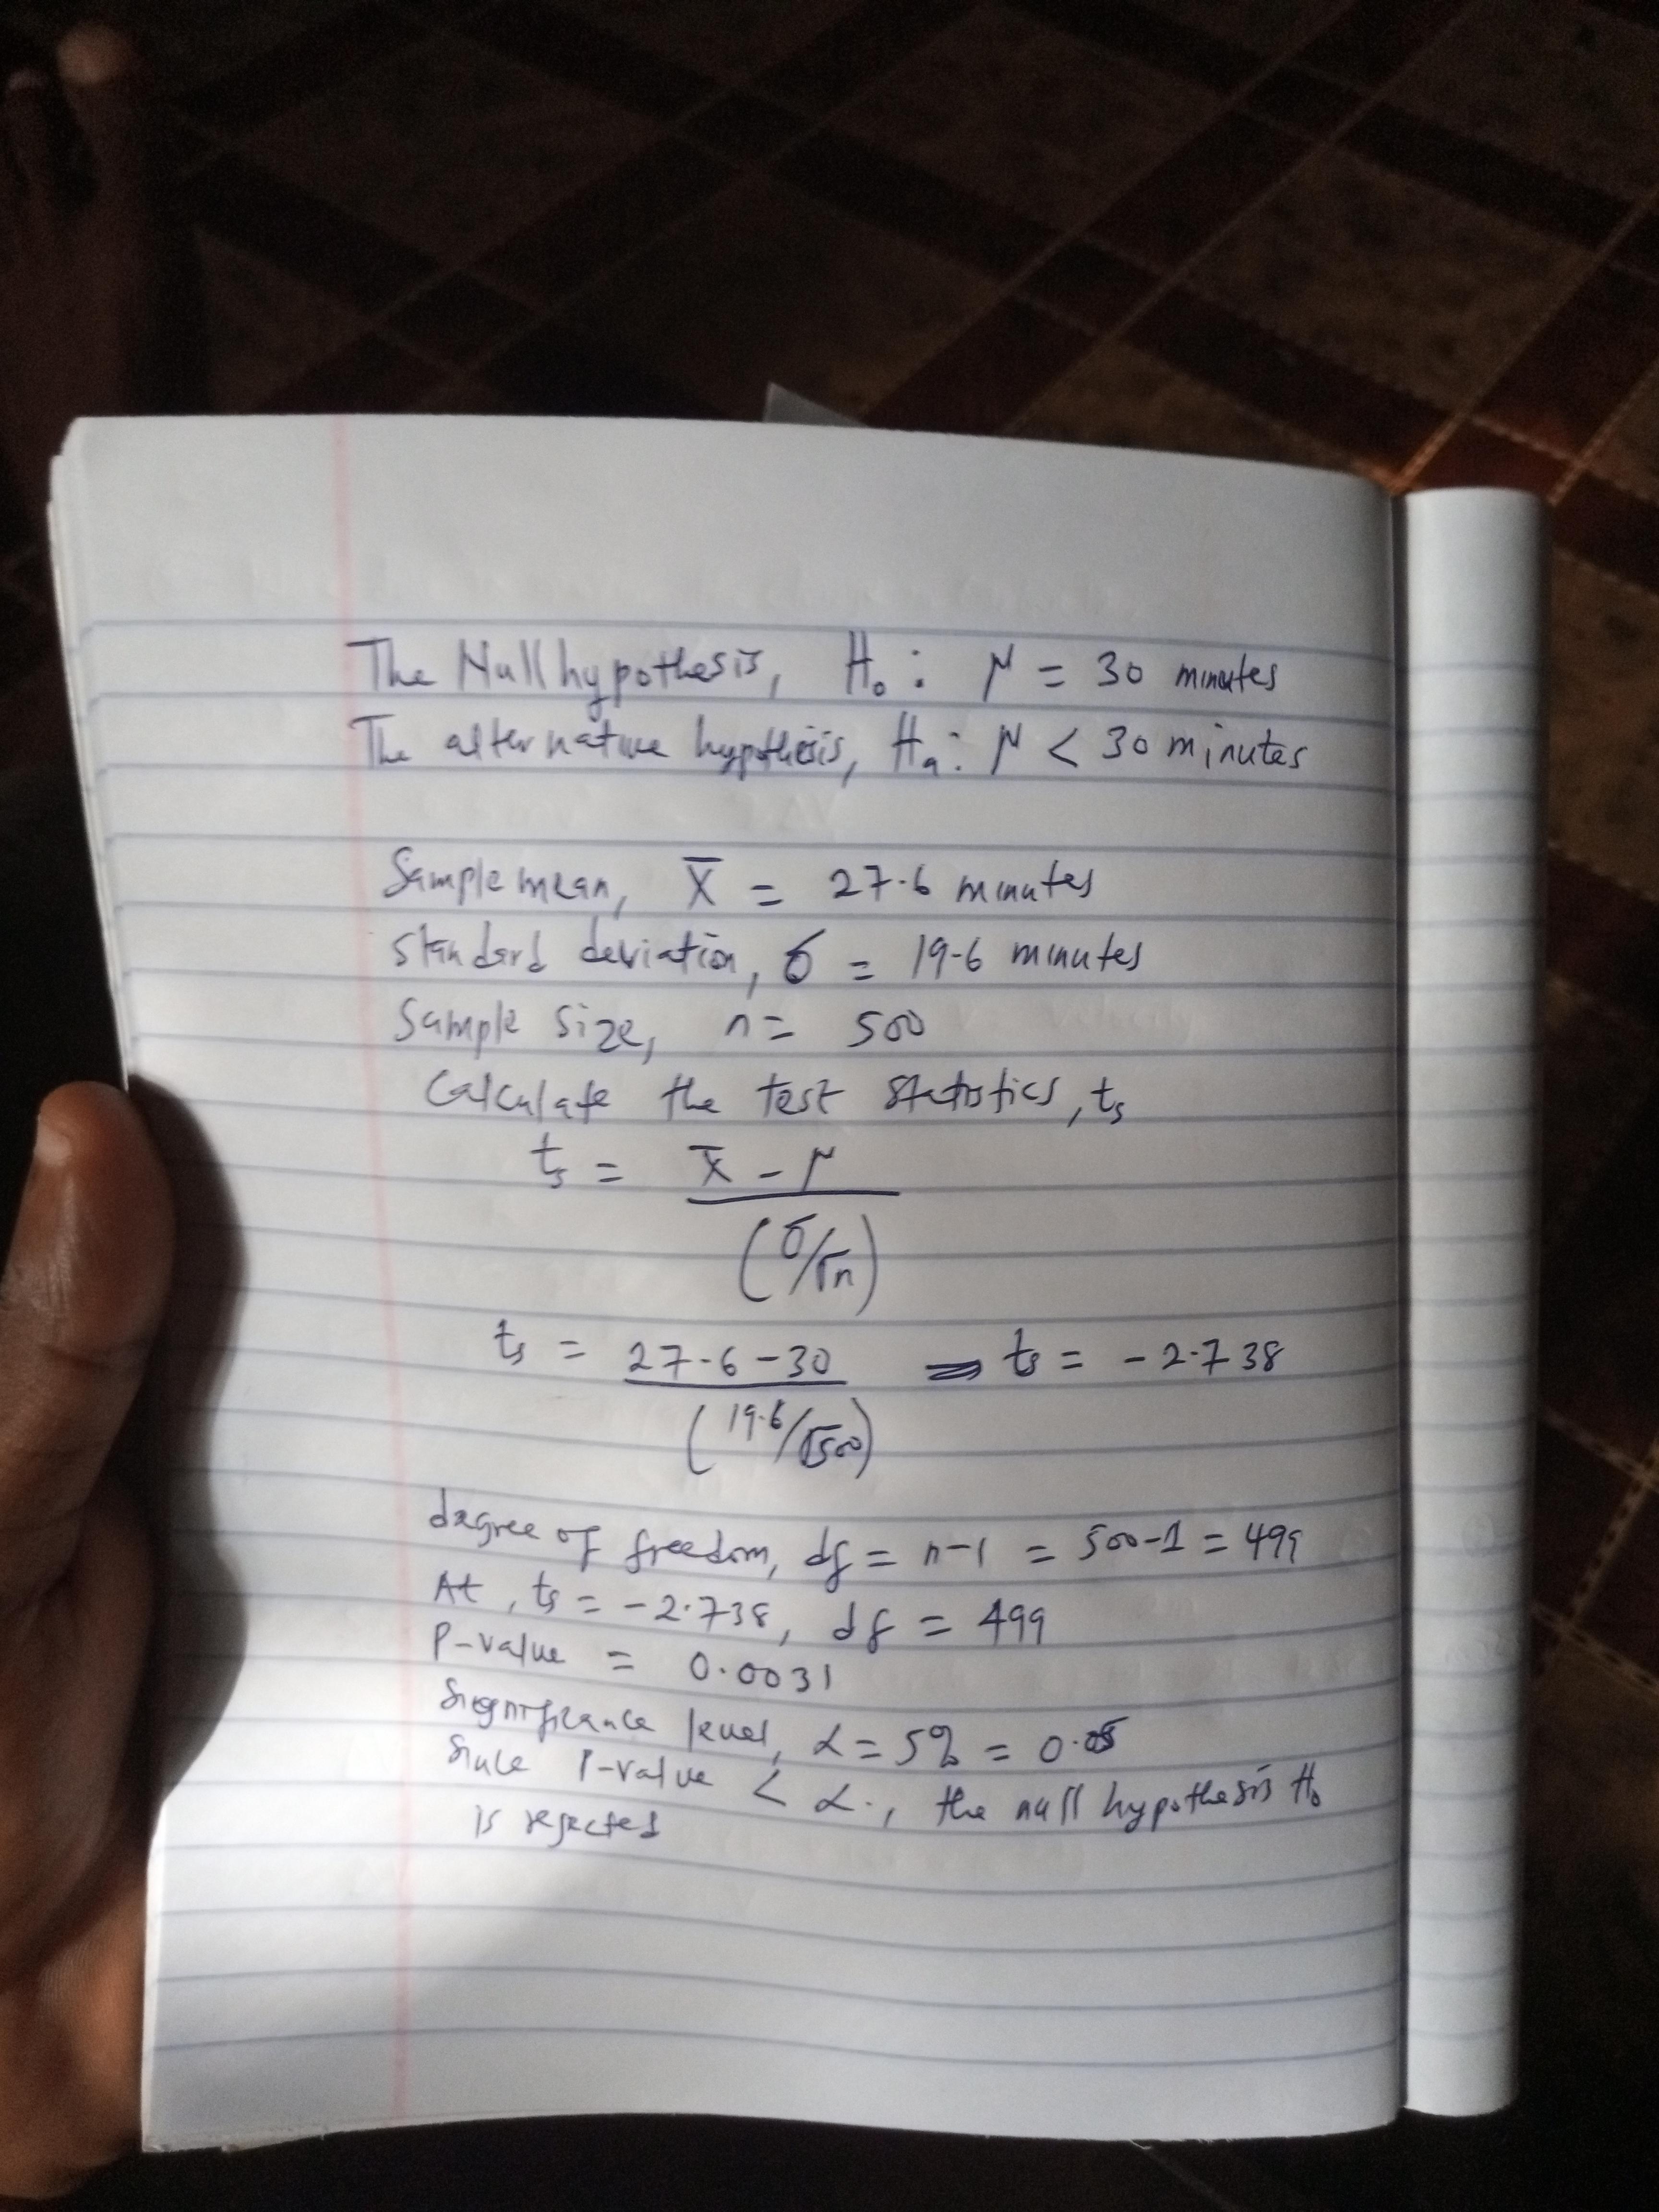 The Null hypothesis, H₀: μ = 30 minutes
The alternative hypothesis, Hₐ: μ < 30 minutes
Sample mean, X̄ = 27.6 minutes
Standard deviation, σ = 19.6 minutes
Sample size, n = 500
Calculate the test statistics, ts
ts = X̄ - μ
(σ/√n)
ts = 27.6 - 30 ⇒ ts = -2.738
(19.6/√500)
degree of freedom, df = n-1 = 500-1 = 499
At, ts = -2.738, df = 499
P-value = 0.0031
Significance level, α = 5% = 0.05
Since P-value < α., the null hypothesis H₀
is rejected